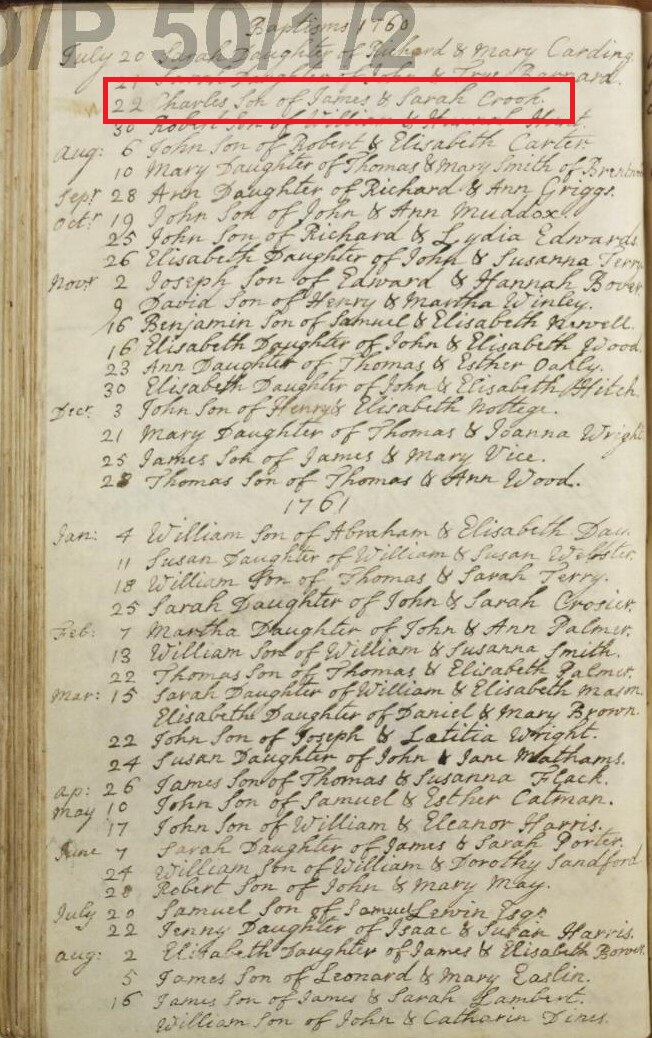 D/P 50/1/2
Baptisms 1760
July 20 Sarah Daughter of Richard & Mary Carding
Daughter of John & Barnard.
22 Charles Son of James & Sarah Crook.
30 Robert Son of William & Hannah
Aug: 6 John Son of Robert & Elisabeth Carter
10 Mary Daughter of Thomas & Mary Smith of
Sepr 28 Ann Daughter of Richard & Ann Griggs.
Octr 19 John Son of John & Ann Muddox.
25 John Son of Richard & Lydia Edwards
26 Elisabeth Daughter of John & Susanna Terry
Novr 2 Joseph Son of Edward & Hannah
9 David Son of Henry & Martha Winley.
16 Benjamin Son of Samuel & Elisabeth Newell.
16 Elisabeth Daughter of John & Elisabeth Wood.
23 Ann Daughter of Thomas & Esther Oakly.
30 Elisabeth Daughter of John & Elisabeth Hitch.
Decr 3 John Son of Henry & Elisabeth Nottege.
21 Mary Daughter of Thomas & Joanna Wright
25 James Son of James & Mary Vice.
28 Thomas Son of Thomas & Ann Wood.
1761
Jan: 4 William Son of Abraham & Elisabeth Day.
11 Susan Daughter of William & Susan Webster.
18 William Son of Thomas & Sarah Terry.
25 Sarah Daughter of John & Sarah Crosier.
Feb: 7 Martha Daughter of John & Ann Palmer.
13 William Son of William & Susanna Smith.
22 Thomas Son of Thomas & Elisabeth Palmer.
Mar: 15 Sarah Daughter of William & Elisabeth Mason.
Elisabeth Daughter of Daniel & Mary Brown.
22 John Son of Joseph & Lætitia Wright.
24 Susan Daughter of John & Jane Mathams.
Ap: 26 James Son of Thomas & Susanna Flack.
May 10 John Son of Samuel & Esther Catman.
17 John Son of William & Eleanor Harris.
June 7 Sarah Daughter of James & Sarah Porter.
24 William Son of William & Dorothy Sandford
28 Robert Son of John & Mary May.
July 20 Samuel Son of Samuel Lewin Esqr.
22 Jenny Daughter of Isaac & Susan Harris.
Aug: 2 Elisabeth Daughter of James & Elisabeth
5 James Son of Leonard & Mary Easlin.
16 James Son of James & Sarah Lambert.
William Son of John & Catharin Dines.